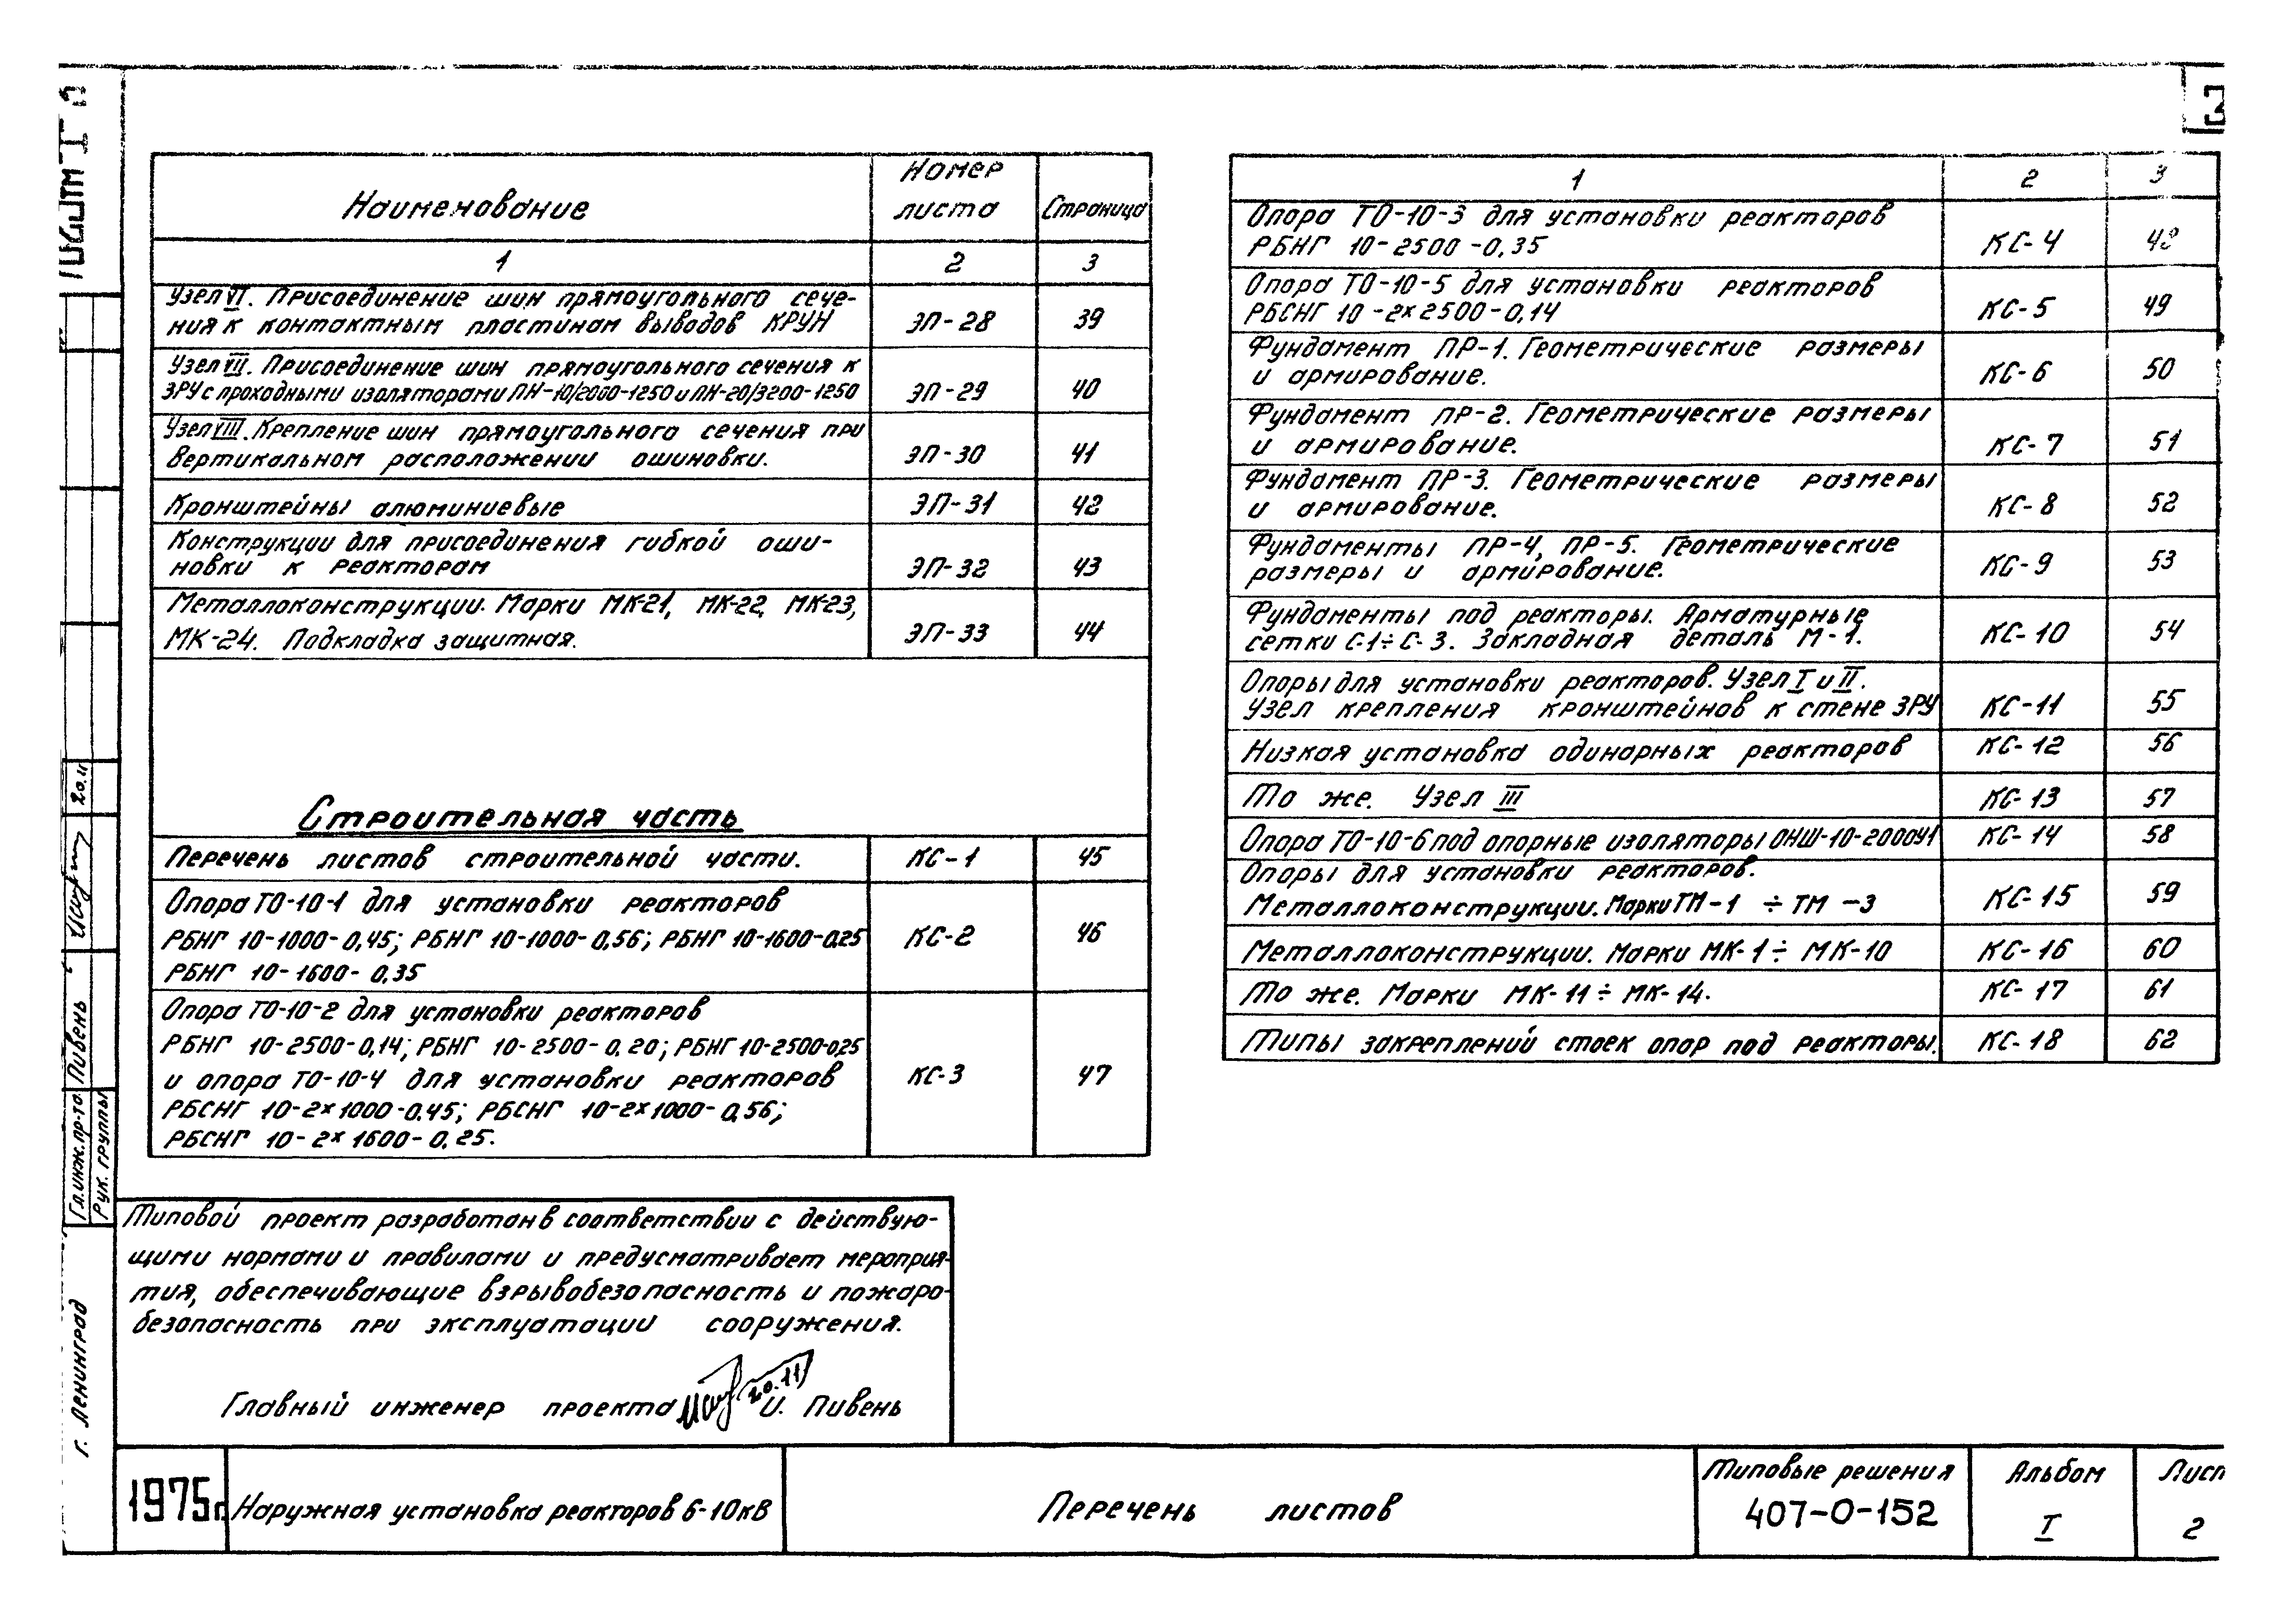 2
Наименование
Номер листа
Страница
1 2 3
Узел VI. Присоединение шин прямоугольного сече-
ния к контактным пластинам выводов КРУН ЭП-28 39
Узел VII. Присоединение шин прямоугольного сечения к
ЗРУ с проходными изоляторами ПН-10/2000-1250 и ПН-20/3200-1250 ЭП-29 40
Узел VIII. Крепление шин прямоугольного сечения при
вертикальном расположении ошиновки. ЭП-30 41
Кронштейны алюминиевые ЭП-31 42
Конструкции для присоединения гибкой оши-
новки к реакторам ЭП-32 43
Металлоконструкции. Марки МК-21, МК-22, МК-23,
МК-24. Подкладка защитная. ЭП-33 44
Строительная часть
Перечень листов строительной части. КС-1 45
Опора ТО-10-1 для установки реакторов
РБНГ 10-1000-0,45; РБНГ 10-1000-0,56; РБНГ 10-1600-0,25 КС-2 46
РБНГ 10-1600-0,35
Опора ТО-10-2 для установки реакторов
РБНГ 10-2500-0,14; РБНГ 10-2500-0,20; РБНГ 10-2500-0,25
и опора ТО-10-4 для установки реакторов КС-3 47
РБСНГ 10-2х1000-0,45; РБСНГ 10-2х1000-0,56;
РБСНГ 10-2х1600-0,25.
1 2 3
Опора ТО-10-3 для установки реакторов
РБНГ 10-2500-0,35 КС-4 48
Опора ТО-10-5 для установки реакторов
РБСНГ 10-2х2500-0,14 КС-5 49
Фундамент ПР-1. Геометрические размеры
и армирование. КС-6 50
Фундамент ПР-2. Геометрические размеры
и армирование. КС-7 51
Фундамент ПР-3. Геометрические размеры
и армирование. КС-8 52
Фундаменты ПР-4, ПР-5. Геометрические
размеры и армирование. КС-9 53
Фундаменты под реакторы. Арматурные
сетки С-1÷С-3. Закладная деталь М-1. КС-10 54
Опоры для установки реакторов. Узел I и II.
Узел крепления кронштейнов к стене ЗРУ КС-11 55
Низкая установка одинарных реакторов КС-12 56
То же. Узел III КС-13 57
Опора ТО-10-6 под опорные изоляторы ОНШ-10-2000У1 КС-14 58
Опоры для установки реакторов.
Металлоконструкции. Марки ТМ-1 ÷ ТМ-3 КС-15 59
Металлоконструкции. Марки МК-1 ÷ МК-10 КС-16 60
То же. Марки МК-11 ÷ МК-14. КС-17 61
Типы закреплений стоек опор под реакторы. КС-18 62
Типовой проект разработан в соответствии с действую-
щими нормами и правилами и предусматривает мероприя-
тия, обеспечивающие взрывобезопасность и пожаро-
безопасность при эксплуатации сооружения.
Главный инженер проекта (20.11) И. Пивень
Гл.инж.пр-та Пивень 20.11
Рук. группы
г. Ленинград
1975г.
Наружная установка реакторов 6-10кВ
Перечень листов
Типовые решения
407-0-152
Альбом
I
Лист
2